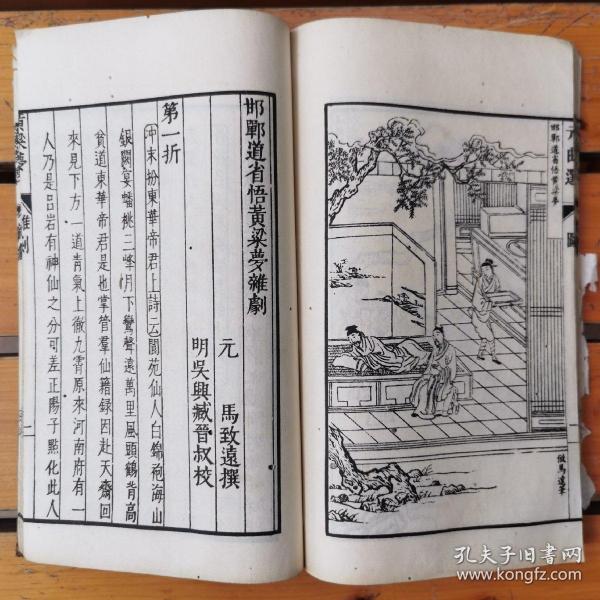 元曲選
圖
邯鄲道省悟黃粱夢
一
倣馬遠筆
邯鄲道省悟黃粱夢雜劇
元 馬致遠撰
明吳興臧晉叔校
第一折
冲末扮東華帝君上詩云閬苑仙人白錦袍海山
銀闕宴蟠桃三峰月下鸞聲遠萬里風頭鶴背高
貧道東華帝君是也掌管羣仙籍錄因赴天齋回
來見下方一道青氣上徹九霄原來河南府有一
人乃是呂岩有神仙之分可差正陽子點化此人
雜劇
二
孔夫子旧书网
www.kongfz.com